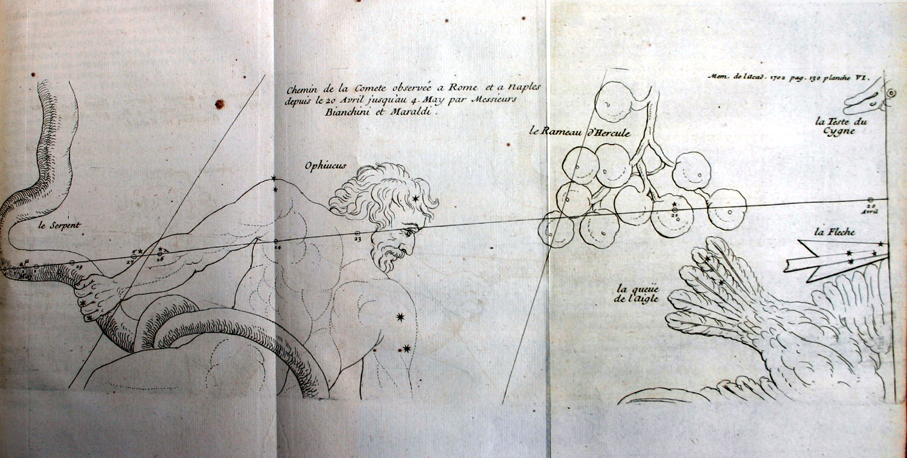 Mem. de l'Acad. 1702 pag. 130 planche VI.
Chemin de la Comete observée a Rome et a Naples
depuis le 20 Avril jusqu'au 4 May par Messieurs
Bianchini et Maraldi.
la Teste du
Cygne
le Rameau d'Hercule
Ophiucus
20
Avril
le Serpent
la Fleche
23
la queüe
de l'aigle